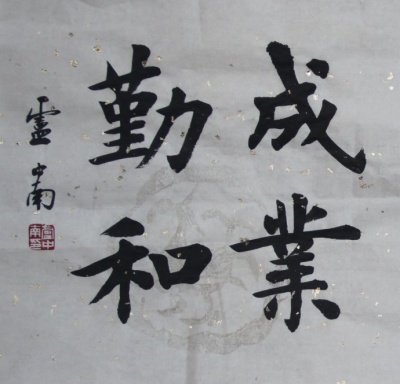 成業
勤和
盧中南
盧中
南印